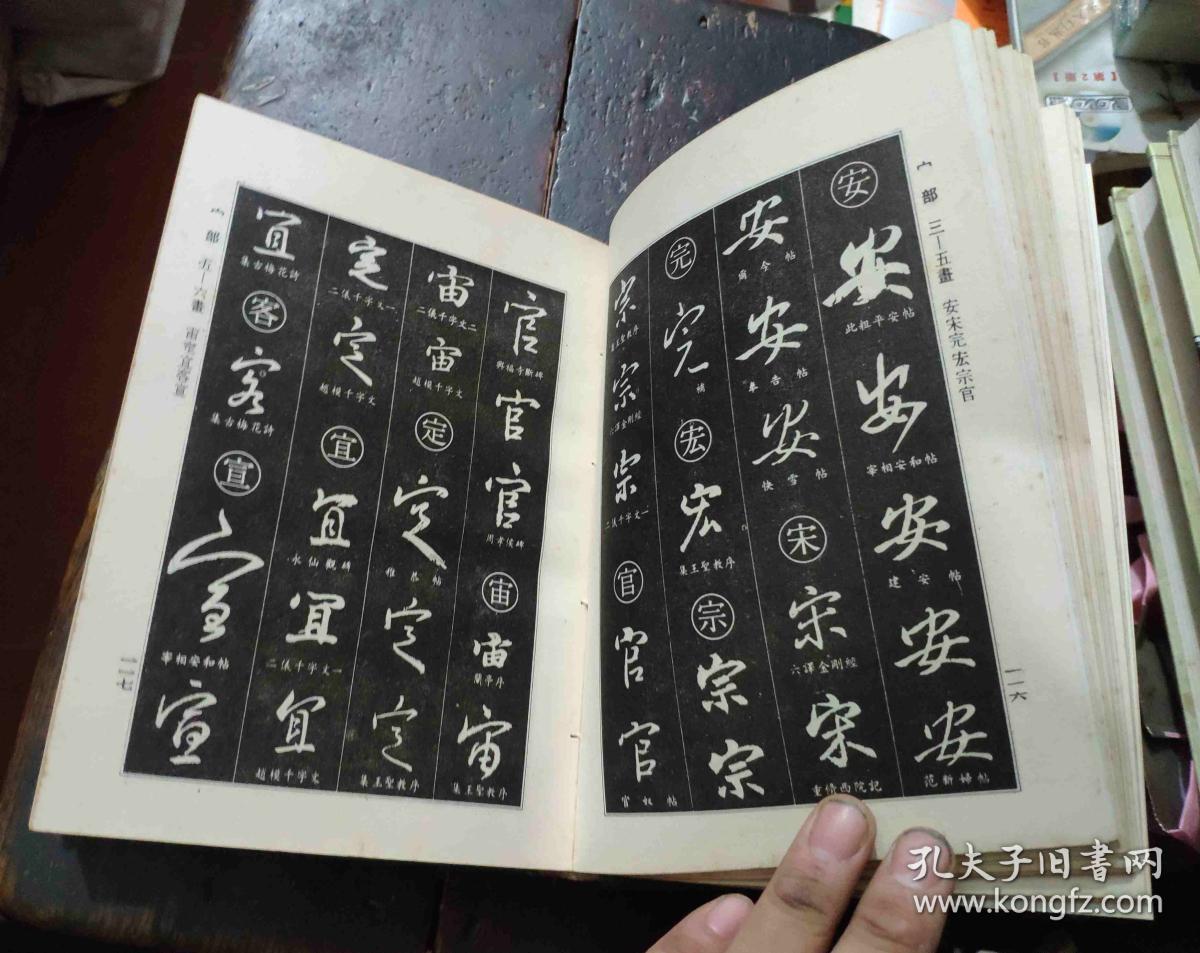 宀部 三—五畫 安宋完宏宗官
一一六
安
安
此粗平安帖
安
宰相安和帖
安
建安帖
安
安
范新婦帖
安
爾今帖
安
阜吉帖
安
快雪帖
宋
宋
六譯金剛經
宋
重脩西院記
完
完
補
宏
宏
集王聖教序
宗
宗
宗
宗
集王聖教序
宗
六譯金剛經
宗
二儀千字文一
官
官
官
官奴帖
官
興福寺斷碑
官
官
周孝侯碑
宙
宙
蘭亭序
宙
集王聖教序
宙
二儀千字文二
宙
趙模千字文
定
定
雅恭帖
定
定
集王聖教序
定
二儀千字文一
定
趙模千字文
宜
宜
永仙觀碑
宜
二儀千字文一
宜
趙模千字文
宜
集古梅花詩
客
客
集古梅花詩
宣
宣
宰相安和帖
宣
宀部 五—六畫 宙定宜客宣
一一七
【第2册】
孔夫子旧書网
www.kongfz.com